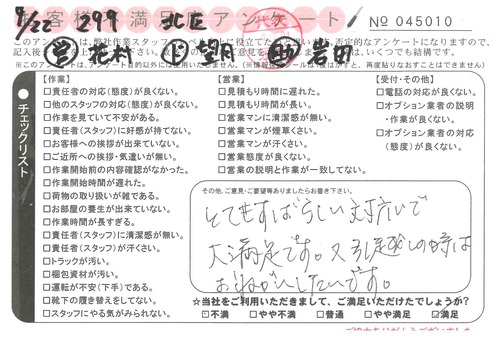 お客様満足アンケート
9/22 299 北区 No 045010
営 花村 上 望月 助 岩田
このアンケートは、弊社作業スタッフ
※このアンケートは、アンケート目的以外には使用いたしません。
チェックリスト
【作業】
□責任者の対応(態度)が良くない。
□他のスタッフの対応(態度)が良くない。
□作業を見ていて不安がある。
□責任者(スタッフ)に好感が持てない。
□お客様への挨拶が出来ていない。
□ご近所への挨拶・気遣いが無い。
□作業開始前の内容確認がなかった。
□作業開始時間が遅れた。
□荷物の取り扱いが雑である。
□お部屋の養生が出来ていない。
□作業時間が長すぎる。
□責任者(スタッフ)に清潔感が無い。
□責任者(スタッフ)が汗くさい。
□トラックが汚い。
□梱包資材が汚い。
□運転が安(下手)である。
□靴下の履き替えをしてない。
□スタッフにやる気がみられない。
【営業】
□見積もり時間に遅れた。
□見積もり時間が長い。
□営業マンに清潔感が無い。
□営業マンが煙草くさい。
□営業マンが汗くさい。
□営業態度が良くない。
□営業の説明と作業が一致してない。
【受付・その他】
□電話の対応が良くない。
□オプション業者の説明
・作業が良くない。
□オプション業者の対応
(態度)が良くない。
その他、ご意見・ご要望等ありましたらお書き下さい。
とてもすばらしい対応いで
大満足です。又引越しの時は
おねがいしたいです。
☆当社をご利用いただきまして、ご満足いただけたでしょうか?
□不満 □やや不満 □普通 □やや満足 ☑満足